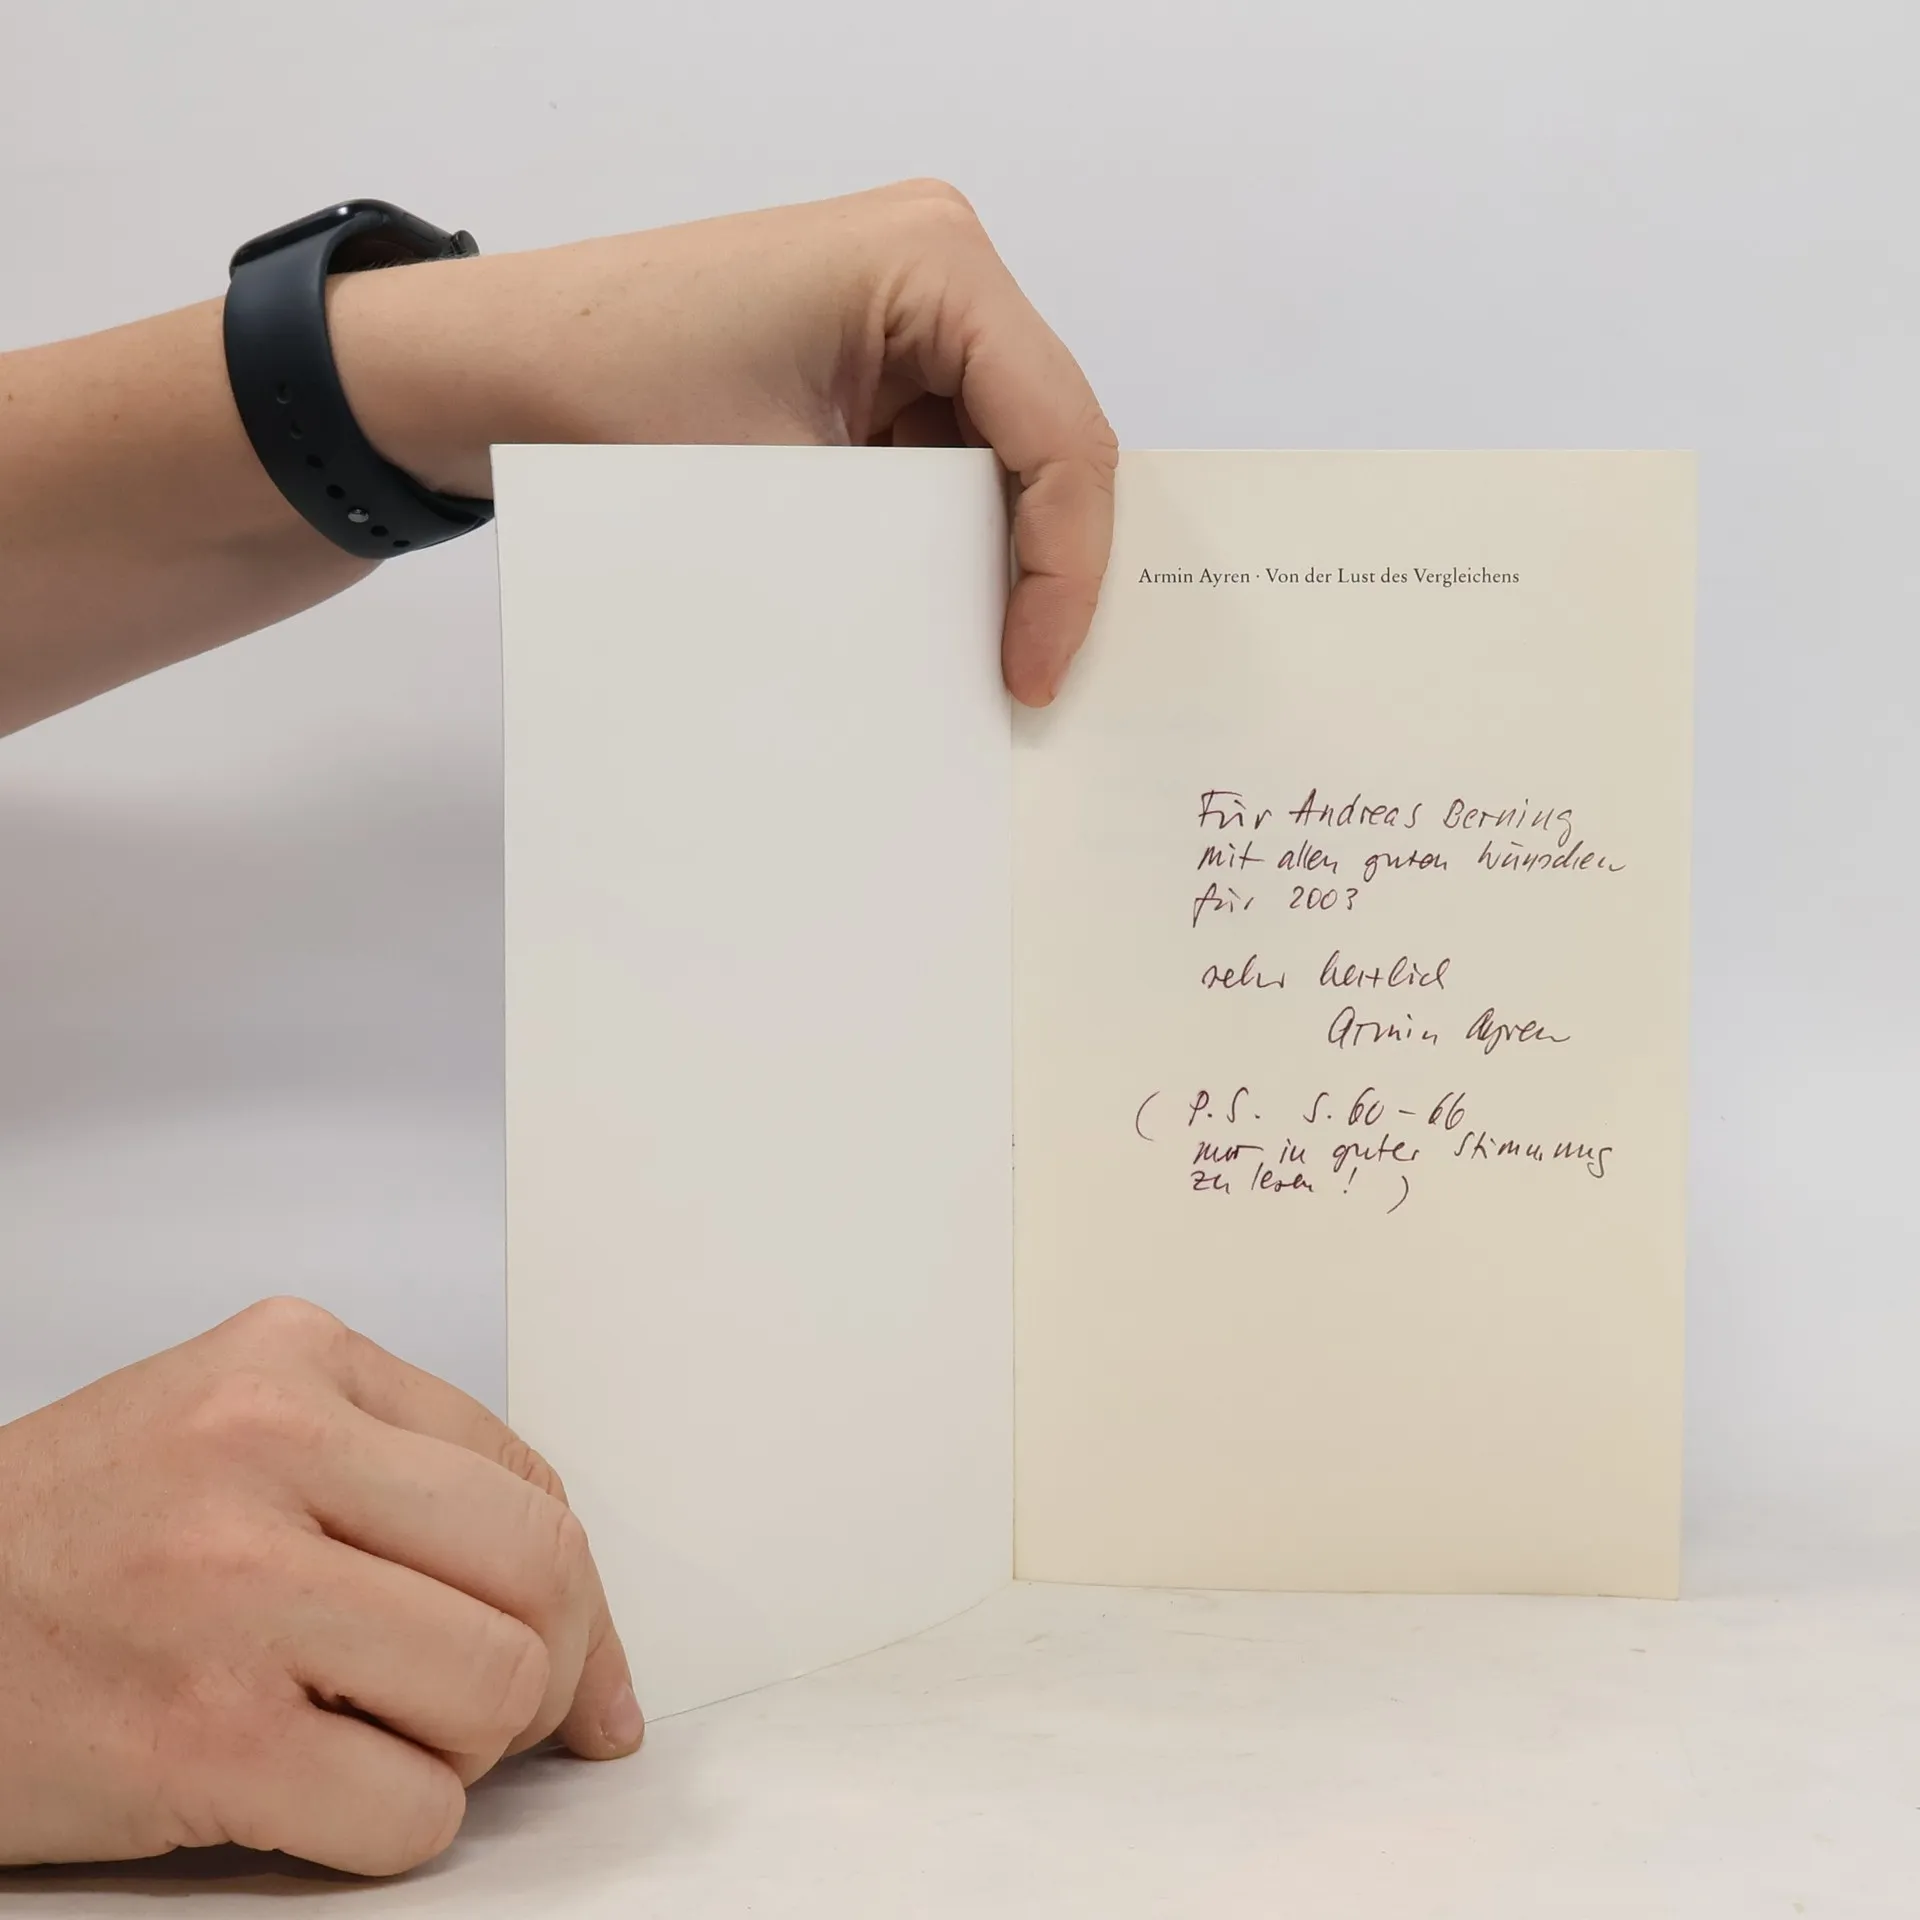 Armin Ayren · Von der Lust des Vergleichens
Für Andreas Berning
mit allen guten Wünschen
für 2003
sehr herzlich
Armin Ayren
( P.S. S. 60 – 66
nur in guter Stimmung
zu lesen ! )